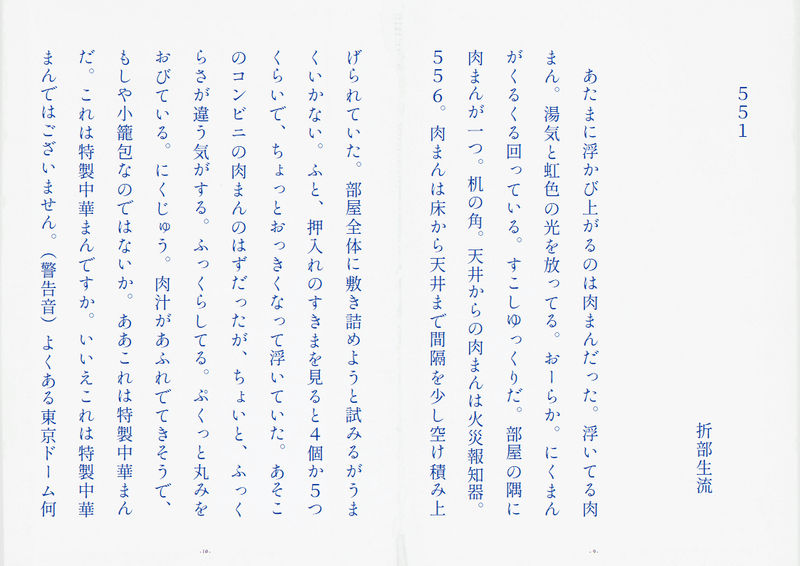 551
折部生流
あたまに浮かび上がるのは肉まんだった。浮いてる肉
まん。湯気と虹色の光を放ってる。おーらか。にくまん
がくるくる回っている。すこしゆっくりだ。部屋の隅に
肉まんが一つ。机の角。天井からの肉まんは火災報知器。
556。肉まんは床から天井まで間隔を少し空け積み上
-9-
げられていた。部屋全体に敷き詰めようと試みるがうま
くいかない。ふと、押入れのすきまを見ると4個か5つ
くらいで、ちょっとおっきくなって浮いていた。あそこ
のコンビニの肉まんのはずだったが、ちょいと、ふっく
らさが違う気がする。ふっくらしてる。ぷくっと丸みを
おびている。にくじゅう。肉汁があふれでてきそうで、
もしや小籠包なのではないか。ああこれは特製中華まん
だ。これは特製中華まんですか。いいえこれは特製中華
まんではございません。（警告音）よくある東京ドーム何
-10-